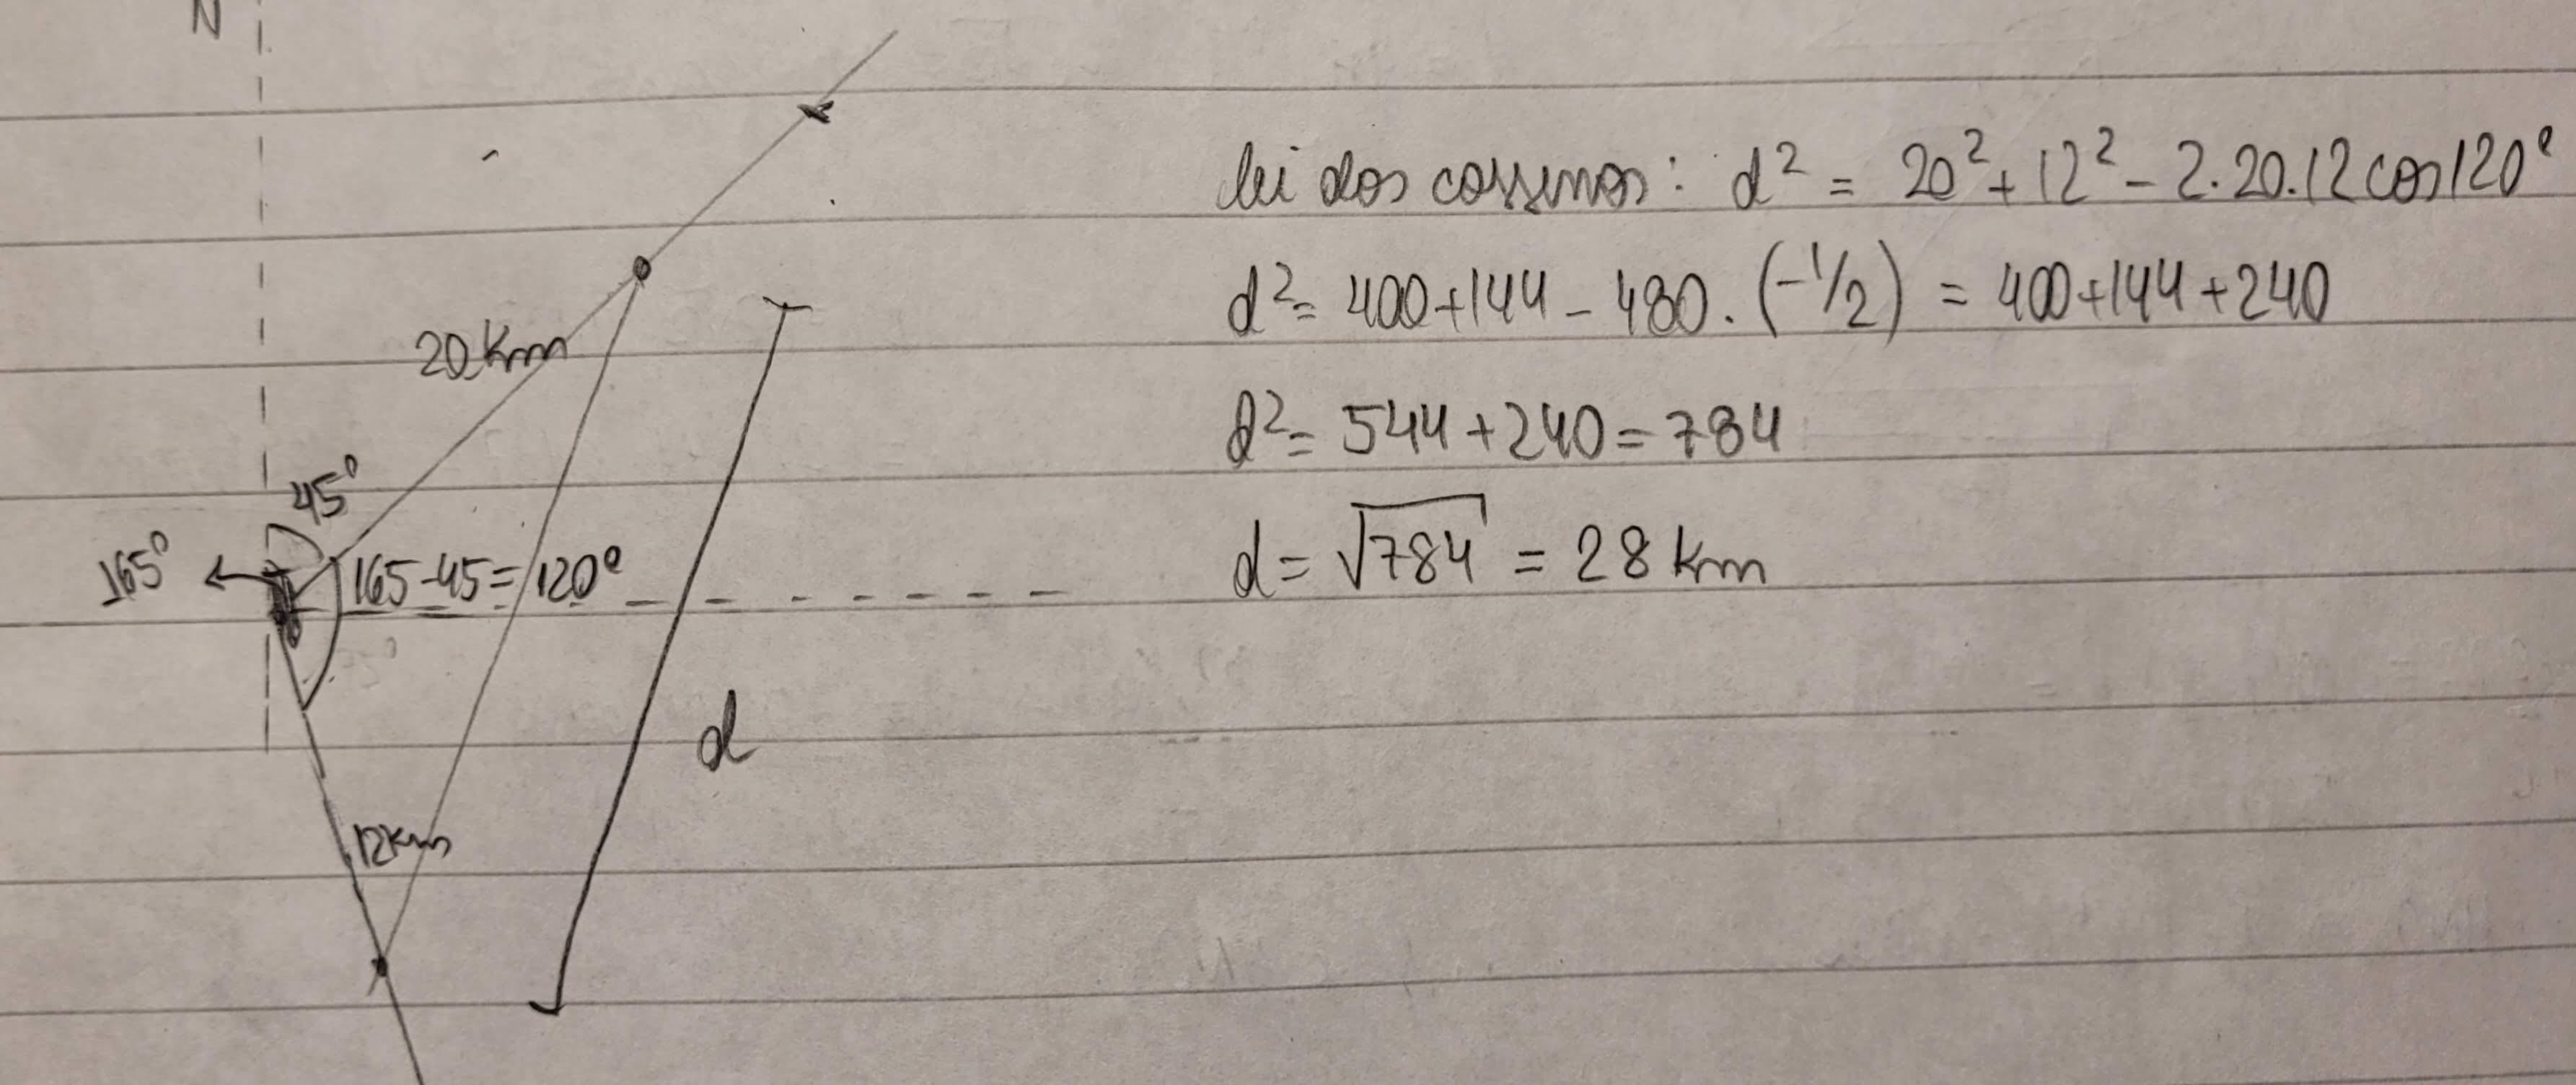 N
20 Km
45°
165°
165-45=120°
12Km
d
lei dos cossenos: d² = 20² + 12² - 2.20.12 cos120°
d² = 400+144 - 480.(-1/2) = 400+144+240
d² = 544+240=784
d = √784 = 28 Km